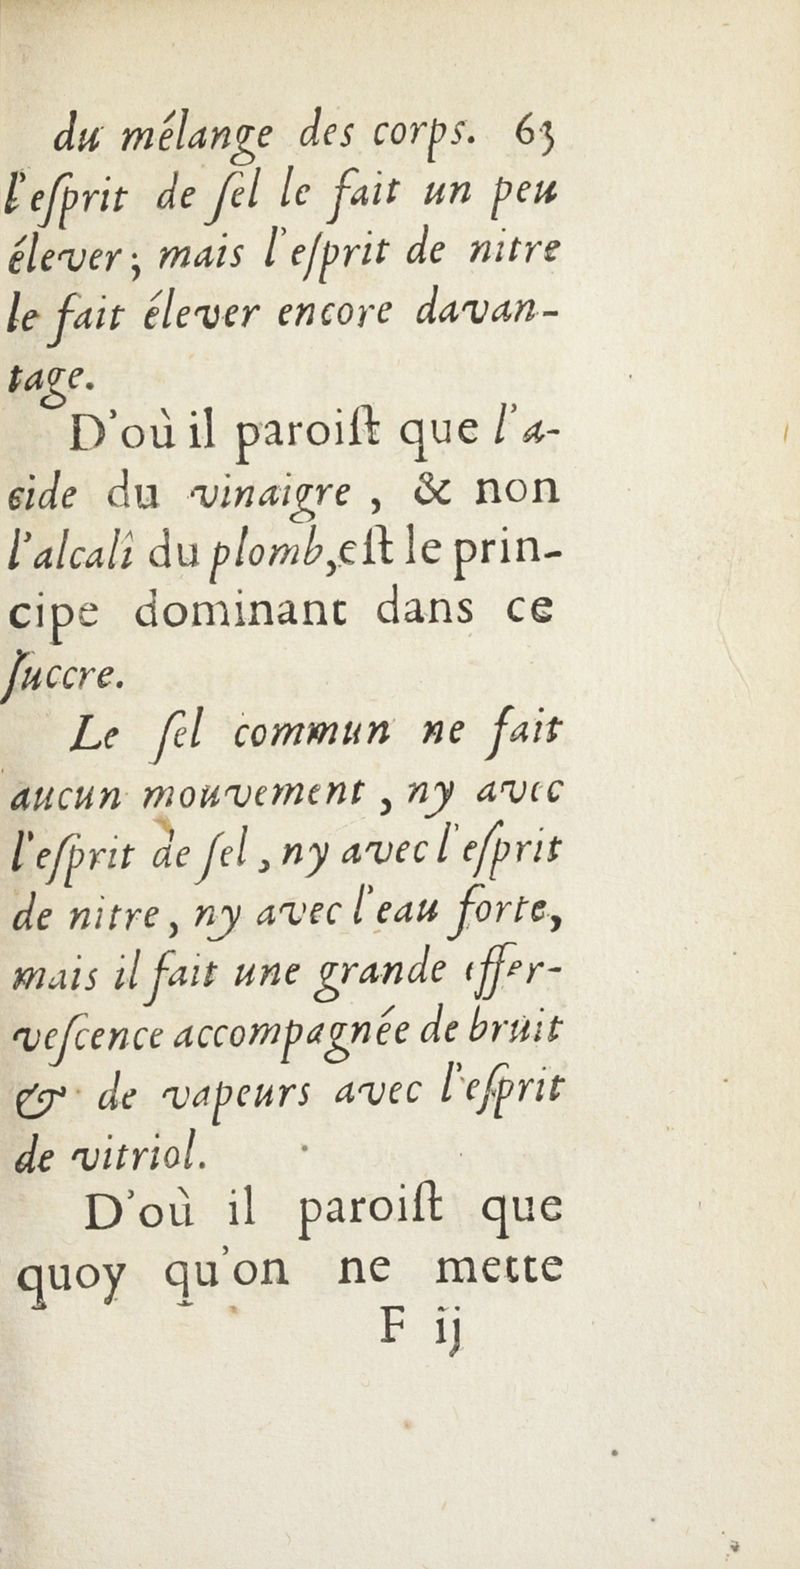 du mélange des corps. 63
l'eſprit de ſel le fait un peu
élever; mais l'eſprit de nitre
le fait élever encore davan-
tage.
D'où il paroiſt que l'a-
cide du vinaigre , & non
l'alcali du plomb,eſt le prin-
cipe dominant dans ce
ſuccre.
Le ſel commun ne fait
aucun mouvement , ny avec
l'eſprit de ſel , ny avec l'eſprit
de nitre , ny avec l'eau forte,
mais il fait une grande effer-
veſcence accompagnée de bruit
& de vapeurs avec l'eſprit
de vitriol.
D'où il paroiſt que
quoy qu'on ne mette
F ij